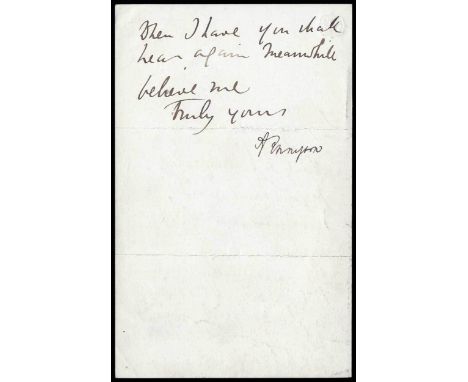 When I have you shall
hear again Meanwhile
believe me
Truly yours
A Tennyson